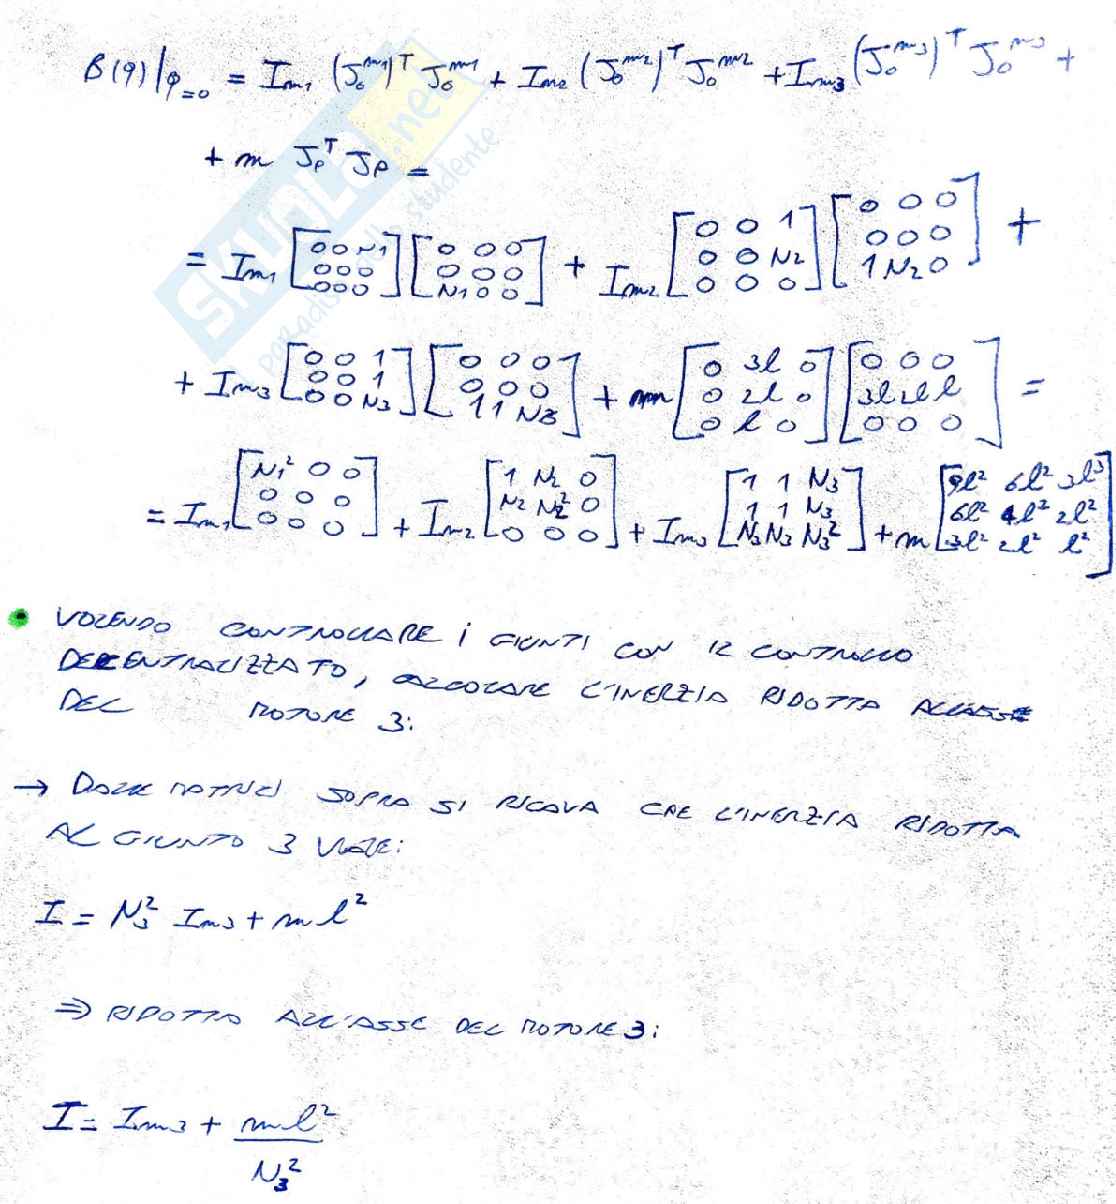 B(q)|q=0 = Im1 (Jo^m1)^T Jo^m1 + Im2 (Jo^m2)^T Jo^m2 + Im3 (Jo^m3)^T Jo^m3 +
+ m Jp^T Jp =
= Im1 [0 0 N1; 0 0 0; 0 0 0] [0 0 0; 0 0 0; N1 0 0] + Im2 [0 0 1; 0 0 N2; 0 0 0] [0 0 0; 0 0 0; 1 N2 0] +
+ Im3 [0 0 1; 0 0 1; 0 0 N3] [0 0 0; 0 0 0; 1 1 N3] + m [0 3l 0; 0 2l 0; 0 l 0] [0 0 0; 3l 2l l; 0 0 0] =
= Im1 [N1² 0 0; 0 0 0; 0 0 0] + Im2 [1 N2 0; N2 N2² 0; 0 0 0] + Im3 [1 1 N3; 1 1 N3; N3 N3 N3²] + m [9l² 6l² 3l³; 6l² 4l² 2l²; 3l² 2l² l²]
VOLENDO CONTROLLARE i GIUNTI CON IL CONTROLLO
DECENTRALIZZATO, CALCOLARE L'INERZIA RIDOTTA ALL'ASSE
DEL MOTORE 3:
→ DALLE MATRICI SOPRA SI RICAVA CHE L'INERZIA RIDOTTA
AL GIUNTO 3 VALE:
I = N3² Im3 + m l²
⇒ RIDOTTA ALL'ASSE DEL MOTORE 3:
I = Im3 + ml²/N3²
SKUOLA.net
paradiso dello studente